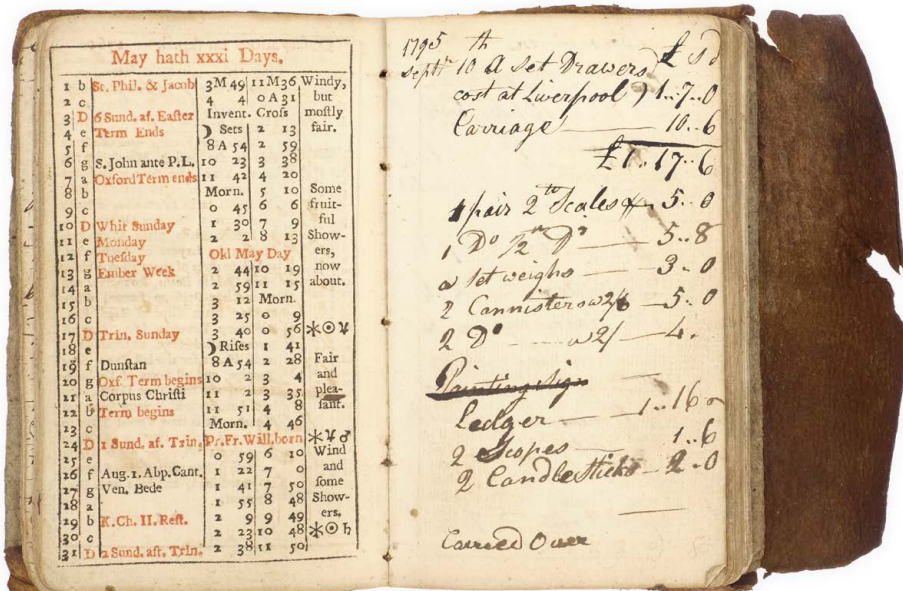 May hath xxxi Days.
1 b St. Phil. & Jacob 3M 49 11M36 Windy,
2 c 4 4 0A31 but
3 D 6 Sund. af. Easter Invent. Cross mostly
4 e Term Ends ☽ Sets 2 13 fair.
5 f 8A54 2 59
6 g S. John ante P.L. 10 23 3 38
7 a Oxford Term ends 11 42 4 20
8 b Morn. 5 10 Some
9 c 0 45 6 6 fruit-
10 D Whit Sunday 1 30 7 9 ful
11 e Monday 2 2 8 13 Show-
12 f Tueſday Old May Day ers,
13 g Ember Week 2 44 10 19 now
14 a 2 59 11 15 about.
15 b 3 12 Morn.
16 c 3 25 0 9
17 D Trin. Sunday 3 40 0 56 ⚹☉♃
18 e ☽ Riſes 1 41
19 f Dunſtan 8A54 2 28 Fair
20 g Oxf. Term begins 10 2 3 4 and
21 a Corpus Chriſti 11 2 3 35 plea-
22 b Term begins 11 51 4 8 ſant.
23 c Morn. 4 46
24 D 1 Sund. af. Trin. Pr. Fr. Will. born ⚹♃♂
25 e 0 59 6 10 Wind
26 f Aug. 1. Abp. Cant. 1 22 7 0 and
27 g Ven. Bede 1 41 7 50 ſome
28 a 1 55 8 48 Show-
29 b K. Ch. II. Reſt. 2 9 9 49 ers.
30 c 2 23 10 48 ⚹☉♄
31 D 2 Sund. aft. Trin. 2 38 11 50
1795 th
Septr 10 A Set Drawers £ s d
cost at Liverpool 1..7..0
Carriage — 10..6
£1..17..6
1 pair 2 to Scales — 5..0
1 Do 1/2 Do — 5..8
a set weighs — 3..0
2 Cannisters a 2/6 — 5..0
2 Do a 2/ — 4.
Painting Sign
Ledger — 1..16
2 Scopes — 1..6
2 Candle Sticks — 2..0
Carried Over